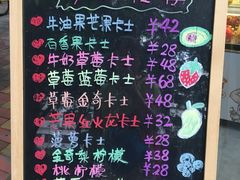 牛油果芒果卡士 ¥42
百香果卡士 ¥28
牛奶草莓卡士 ¥48
草莓蓝莓卡士 ¥48
草莓金奇卡士 ¥48
芒果红火龙卡士 ¥32
菠萝卡士 ¥28
金奇梨柠檬 ¥38
桃柠檬 ¥28